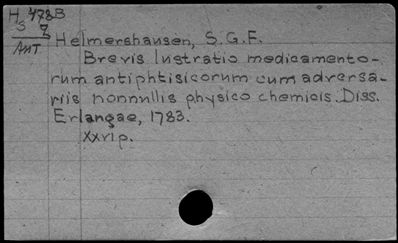 H 478B
S 7
ANT
Helmershausen, S. G. F.
Brevis lustratio medicamento-
rum antiphtisicorum cum adversa-
riis nonnullis physico chemicis. Diss.
Erlangae, 1783.
XXVI p.